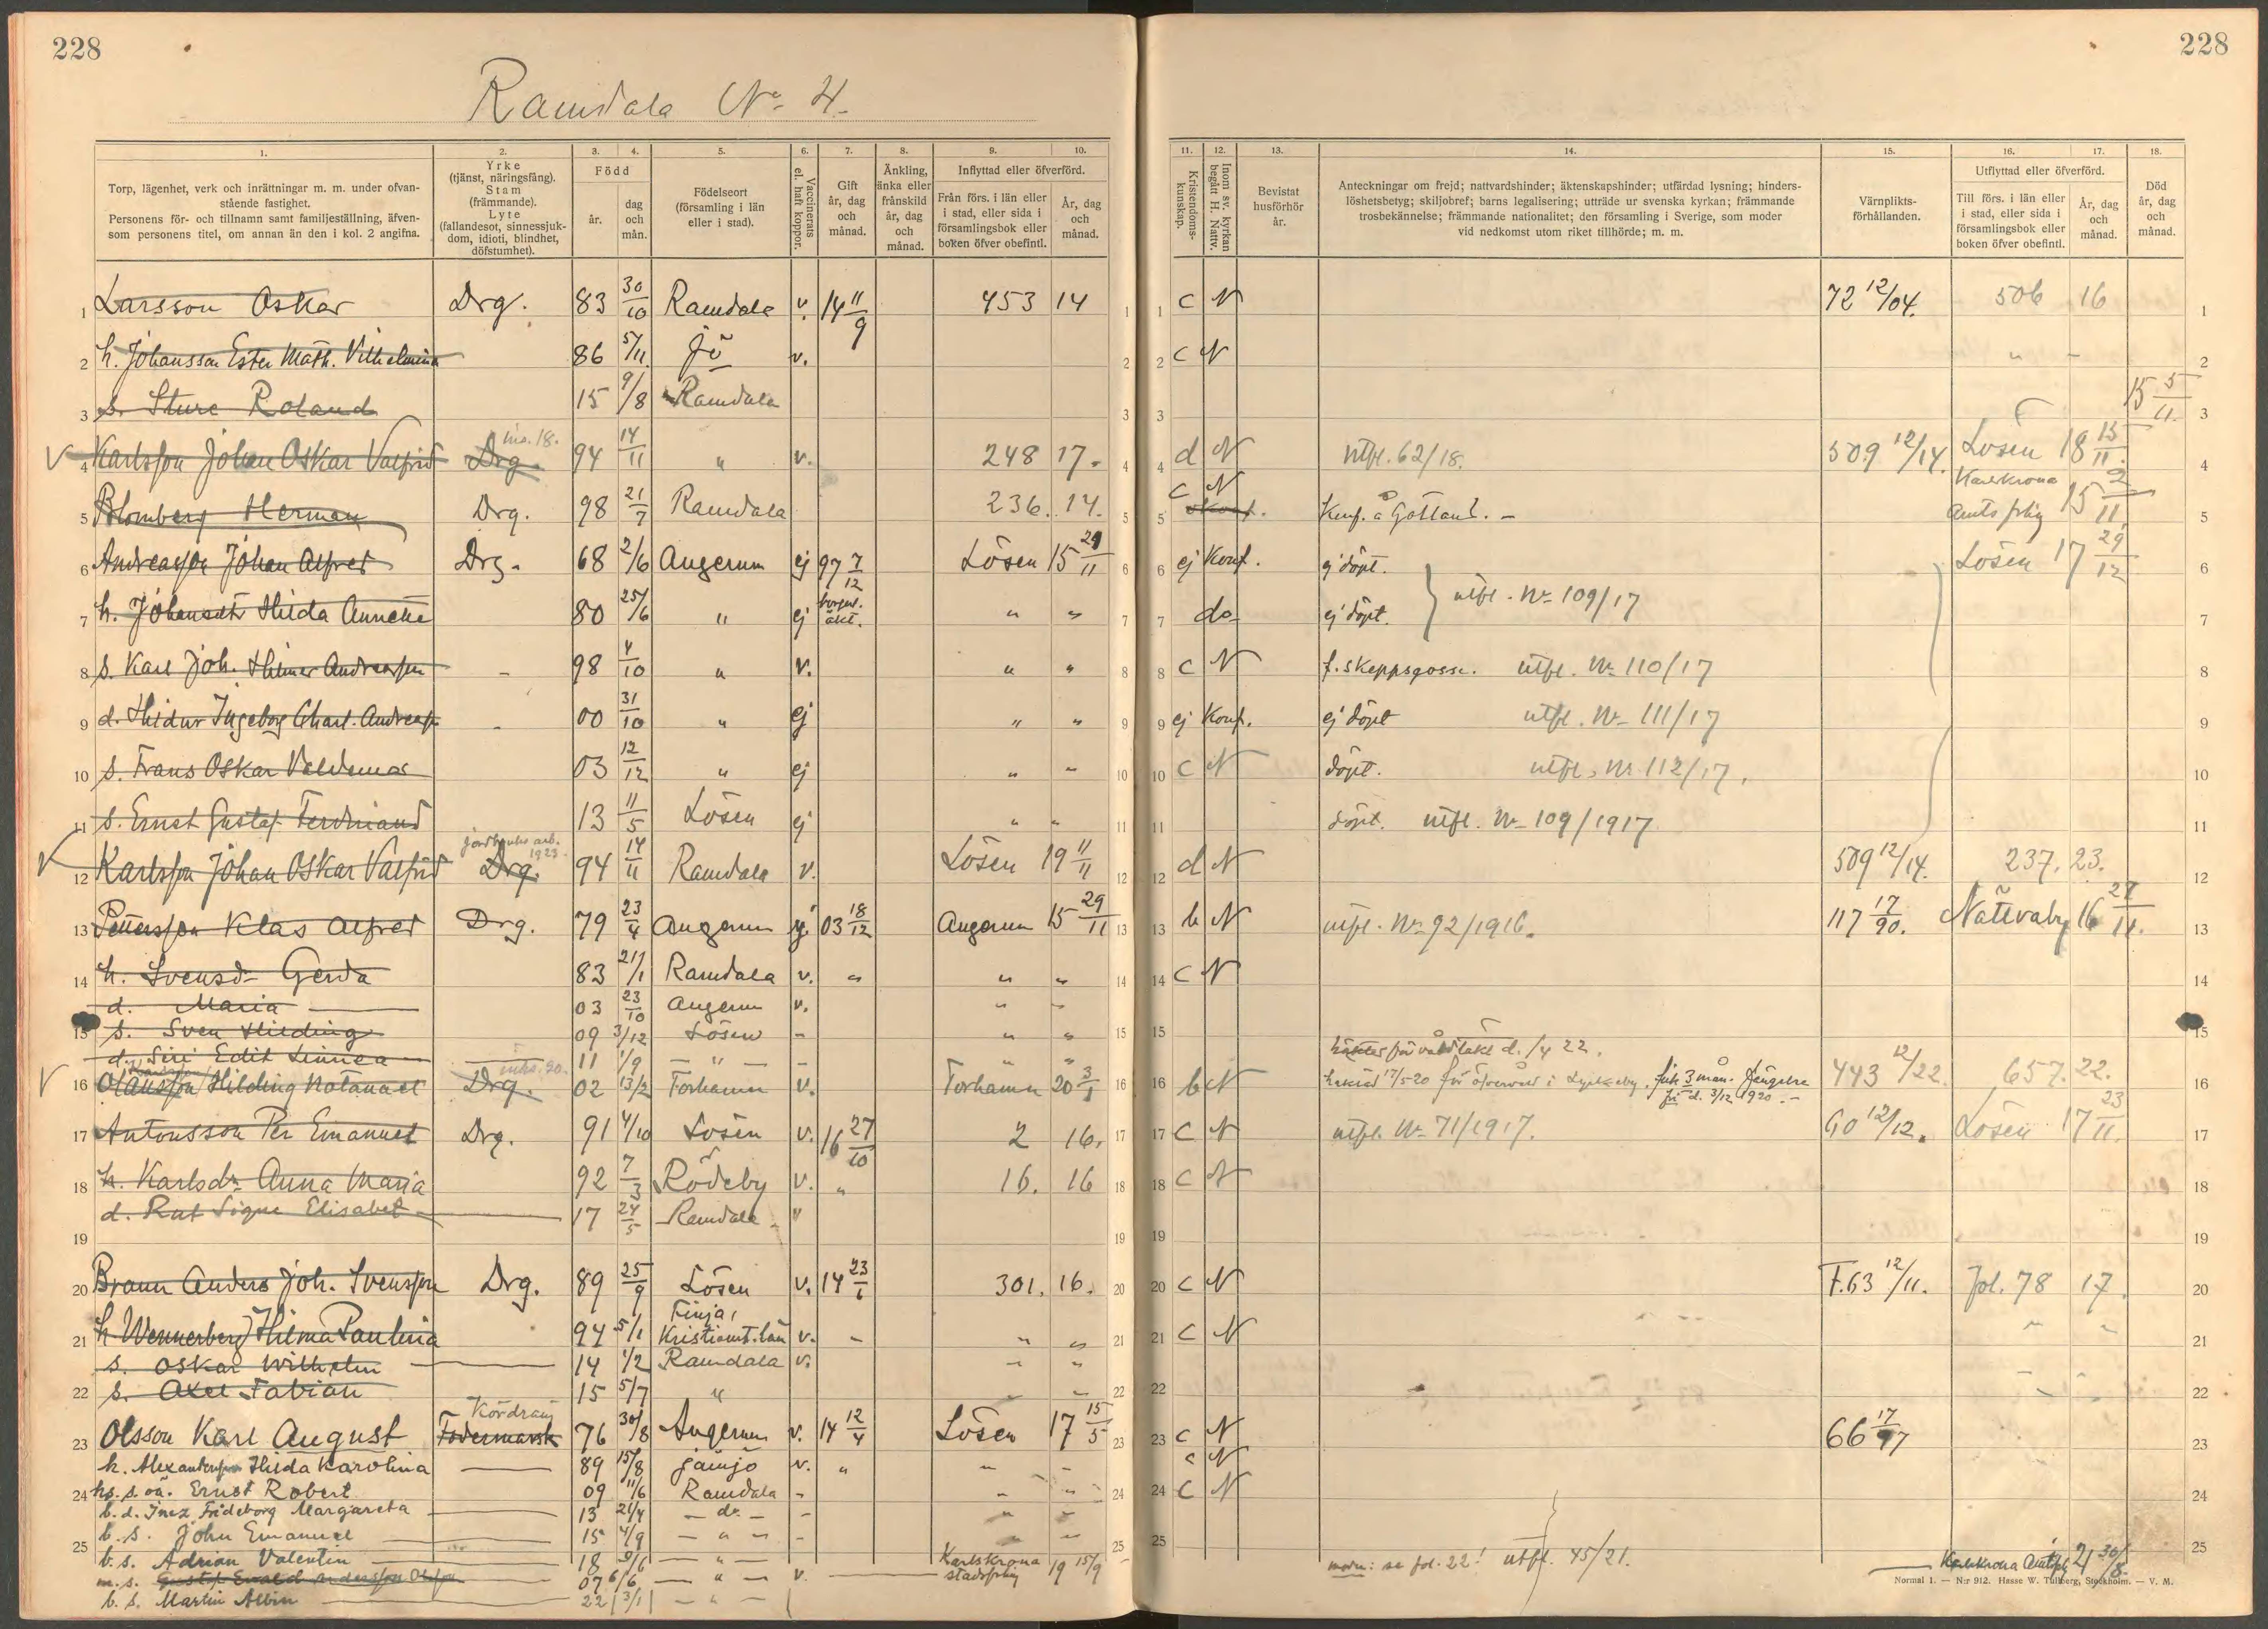 228
228
Ramdala No 4.
1.
2.
3.
4.
5.
6.
7.
8.
9.
10.
Torp, lägenhet, verk och inrättningar m. m. under ofvan-
stående fastighet.
Personens för- och tillnamn samt familjeställning, äfven-
som personens titel, om annan än den i kol. 2 angifna.
Yrke
(tjänst, näringsfång).
Stam
(främmande).
Lyte
(fallandesot, sinnessjuk-
dom, idioti, blindhet,
döfstumhet).
Född
år.
dag
och
mån.
Födelseort
(församling i län
eller i stad).
Vaccinerats
el. haft koppor.
Gift
år, dag
och
månad.
Änkling,
änka eller
frånskild
år, dag
och
månad.
Inflyttad eller öfverförd.
Från förs. i län eller
i stad, eller sida i
församlingsbok eller
boken öfver obefintl.
År, dag
och
månad.
11.
12.
13.
14.
15.
16.
17.
18.
Kristendoms-
kunskap.
Inom sv. kyrkan
begått H. Nattv.
Bevistat
husförhör
år.
Anteckningar om frejd; nattvardshinder; äktenskapshinder; utfärdad lysning; hinders-
löshetsbetyg; skiljobref; barns legalisering; utträde ur svenska kyrkan; främmande
trosbekännelse; främmande nationalitet; den församling i Sverige, som moder
vid nedkomst utom riket tillhörde; m. m.
Värnplikts-
förhållanden.
Utflyttad eller öfverförd.
Till förs. i län eller
i stad, eller sida i
församlingsbok eller
boken öfver obefintl.
År, dag
och
månad.
Död
år, dag
och
månad.
1 Larsson Oskar Drg. 83 30/10 Ramdala v. 14 11/9 453 14 1 1 c N 72 12/04. 506 16 1
2 h. Johansson Ester Math. Vilhelmina 86 5/11. v. 2 2 c N " - 2
3 s. Sture Roland 15 9/8 Ramdala 3 3 15 5/11. 3
4 Karlsson Johan Oskar Valfrid Drg. 94 14/11 " v. 248 17. 4 4 d N utfl. 62/18. 509 12/14. Lösen 18 15/11. 4
5 Blomberg Herman Drg. 98 21/7 Ramdala 236. 14. 5 5 c N Konf. å Gottland. - Karlskrona
Amts förs 15 2/11. 5
6 Andreasson Johan Alfred Drg. 68 2/6 Augerum ej 97 7/12 Lösen 15 29/11 6 6 ej Konf. ej döpt. Lösen 17 29/12 6
7 h. Johansdr Hilda Annette 80 25/6 " ej borgerl. äkt. " " 7 7 do ej döpt. utfl. No 109/17 7
8 s. Karl Joh. Hilmer Andreasson - 98 4/10 " v. " " 8 8 c N f. skeppsgosse. utfl. No 110/17 8
9 d. Hildur Ingeborg Charl. Andreasf. - 00 31/10 " ej " " 9 9 ej Konf. ej döpt utfl. No 111/17 9
10 s. Frans Oskar Valdemar 03 12/12 " ej " " 10 10 c N döpt. utfl. No 112/17. 10
11 s. Ernst Gustaf Ferdinand 13 11/5 Lösen ej " " 11 11 döpt. utfl. No 109/1917 11
jordbruks arb.
1923.
12 Karlsson Johan Oskar Valfrid Drg. 94 14/11 Ramdala v. Lösen 19 11/11 12 12 d N 509 12/14. 237. 23. 12
13 Pettersson Klas Alfred Drg. 79 23/4 Augerum ej 03 18/12 Augerum 15 29/11 13 13 b N utfl. No 92/1916. 117 17/90. Nättraby 16 27/11. 13
14 h. Svensdr Gerda 83 21/1 Ramdala v. " " " 14 14 c N 14
d. Maria 03 23/10 Augerum v. " "
15 s. Sven Hilding 09 3/12 Lösen - " " 15 15 15
d. Siri Edit Linnea 11 1/9 - " - - " "
16 Olausson Hilding Natanael Drg. 02 13/2 Torhamn v. Torhamn 20 3/1 16 16 b N 443 12/22. 657. 22. 16
17 Antonsson Per Emanuel Drg. 91 4/10 Lösen v. 16 27/10 2 16. 17 17 c N utfl. No 71/1917. 60 12/12. Lösen 17 23/11. 17
18 h. Karlsdr Anna Maria 92 7/3 Rödeby v. " 16. 16 18 18 c N 18
d. Rut Signe Elisabet 17 24/5 Ramdala "
19 19 19 19
20 Braun Anders Joh. Svensson Drg. 89 25/9 Lösen v. 14 23/1 301. 16. 20 20 c N F.63 12/11. fol. 78 17. 20
Finja,
21 h. Wennerberg Hilma Paulina 94 5/1 Kristianst. län v. - " " 21 21 c N " " 21
s. Oskar Wilhelm 14 1/2 Ramdala v. " "
22 s. Axel Fabian 15 5/7 " 22 22 22
Kördräng
23 Olsson Karl August Fodermarsk 76 30/8 Augerum v. 14 12/4 Lösen 17 15/5 23 23 c N 66 17/97 23
h. Alexandersson Hilda Karolina 89 15/8 Jämjö v. " " - c N
24 hs. s. oä. Ernst Robert 09 11/6 Ramdala - 24 24 c N 24
b. d. Inez Frideborg Margareta 13 21/4 - do -
b. s. John Emanuel 15 4/9 - " - -
25 b. s. Adrian Valentin 18 9/6 - " - 25 25 25
m. s. Gustaf Evald Andersson Olsson 07 6/6 - " - v. Karlskrona
stadsförs 19 15/9 modr: se fol. 22! utfl. 45/21. Karlskrona 21 30/8.
b. s. Martin Albin 22 3/1 - " -
Normal 1. — N:r 912. Hasse W. Tullberg, Stockholm. — V. M.